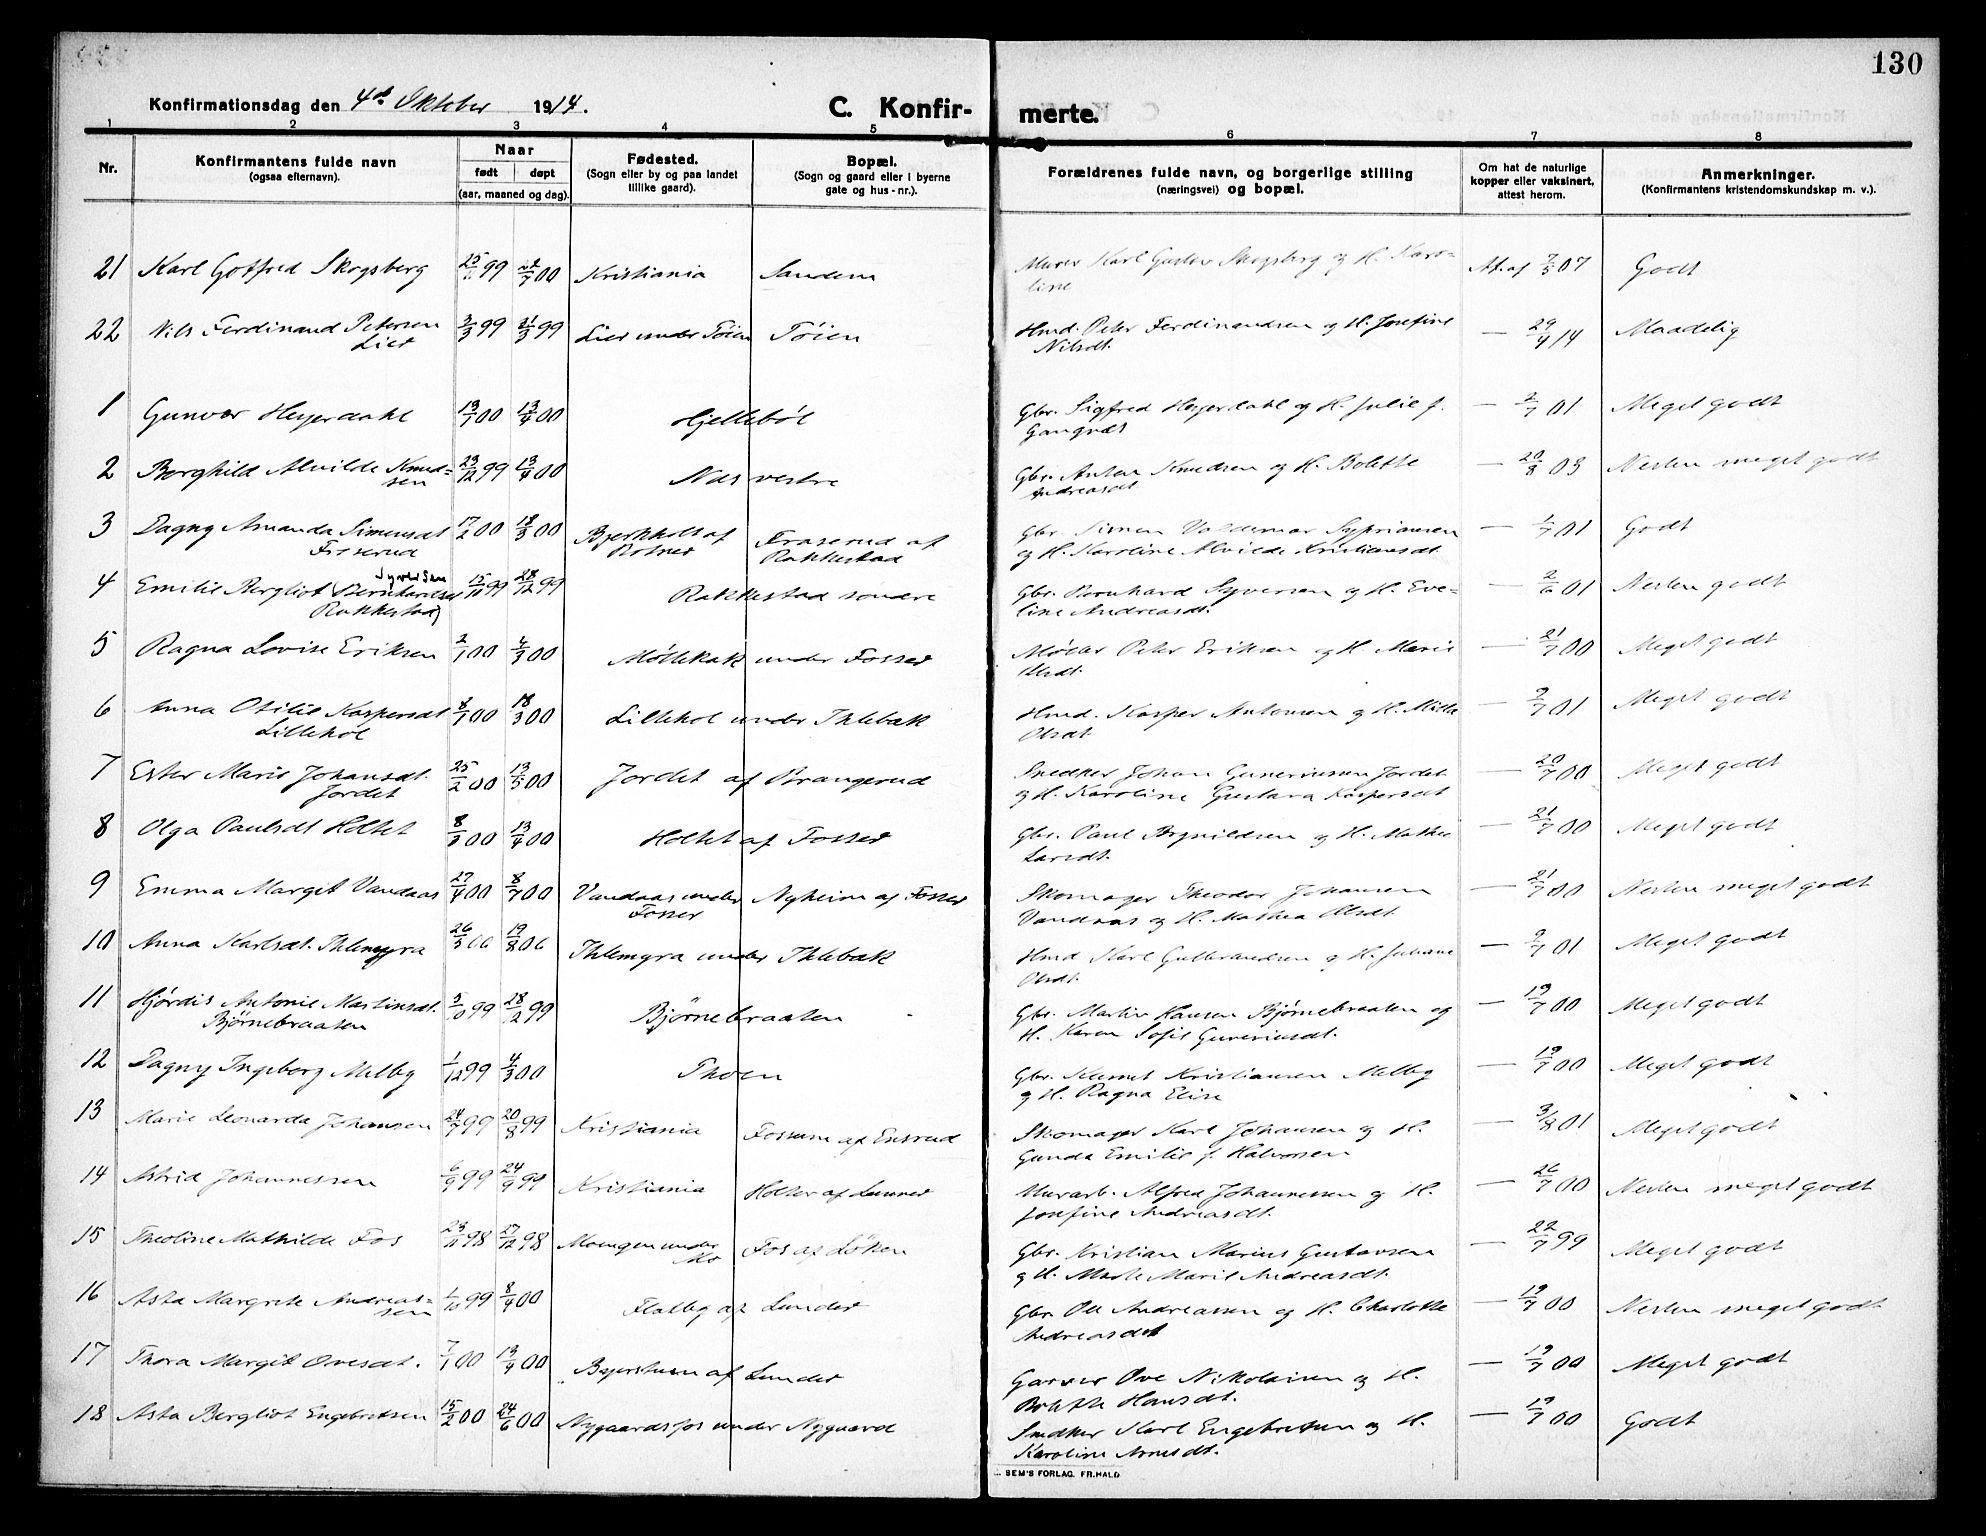 130
Konfirmationsdag den 4de Oktober 1914.
C. Konfir-
merte.
1 2 3 4 5 6 7 8
Nr.
Konfirmantens fulde navn
(ogsaa efternavn).
Naar
født døpt
(aar, maaned og dag).
Fødested.
(Sogn eller by og paa landet
tillike gaard).
Bopæl.
(Sogn og gaard eller i byerne
gate og hus-nr.).
Forældrenes fulde navn, og borgerlige stilling
(næringsvei) og bopæl.
Om hat de naturlige
kopper eller vaksinert,
attest herom.
Anmerkninger.
(Konfirmantens kristendomskundskap m. v.).
21 Karl Gotfred Skogsberg 99 00 Kristiania Sandem Murer Karl Gustav Skogsberg og H. Karo- At. af 2/5 07 Godt
line
22 Nils Ferdinand Petersen 3/3 99 21/3 99 Lier under Töien Töien Hmd. Peter Ferdinandsen og H. Josefine — 29/4 14 Maadelig
Lier
Nilsdt.
1 Gunvor Heyerdahl 13/1 00 13/4 00 Hjellebøl Gbr. Sigfred Heyerdahl og H. Julie f. — 2/7 01 Meget godt
Gangnæs
2 Borghild Alvilde Knud- 23/12 99 13/4 00 Næs vestre Gbr. Anton Knudsen og H. Bolette — 20/8 03 Nesten meget godt
sen
Andreasdt.
3 Dagny Amanda Simensdt 17/2 00 18/3 00 Bjerkholt af Fraserud af Gbr. Simen Valdemar Sypriansen — 1/7 01 Godt
Fraserud Rotnes Rakkestad og H. Karoline Alvilde Kristiansdt.
Syversen
4 Emilie Bergliot (Bernhardsdt 15/11 99 28/12 99 Rakkestad søndre Gbr. Bernhard Syversen og H. Eve- — 2/6 01 Nesten godt
Rakkestad) line Andreasdt.
5 Ragna Lovise Eriksen 2/1 00 4/3 00 Möllebak under Fosser Møller Peter Eriksen og H. Marie — 21/7 00 Meget godt
Olsdt.
6 Anna Otilie Kaspersdt 8/1 00 18/3 00 Lillehol under Ihlebæk Hmd. Kasper Antonsen og H. — 2/7 01 Meget godt
Lillehol Olsdt.
7 Ester Marie Johansdt. 25/2 00 13/5 00 Jordet af Brangerud Snedker Johan Gunerinsen Jordet — 20/7 00 Meget godt
Jordet og H. Karoline Gustava Kaspersdt
8 Olga Paulsdt Holtet 00 13/4 00 Holtet af Fosser Gbr. Paul Brynildsen og H. Mathea — 21/7 00 Meget godt
Larsdt.
9 Emma Margit Vandaas 27/4 00 8/7 00 Vandaas under Nyheim af Fosser Skomager Theodor Johansen — 21/7 00 Nesten meget godt
Fosser Vandaas og H. Mathea Olsdt.
10 Anna Karlsdt. Ihlemyra 26/3 00 19/8 00 Ihlemyra under Ihlebæk Hmd Karl Gulbrandsen og H. Juliane — 2/7 01 Meget godt
Olsdt.
11 Hjördis Antonie Martinsdt. 5/10 99 28/12 99 Bjørnebraaten Gbr. Martin Hansen Bjørnebraaten og — 19/7 00 Meget godt
Björnebraaten H. Karen Sofie Guneriusdt.
12 Dagny Ingeborg Melby 1/12 99 4/3 00 Thoen Gbr. Kristiansen Melby — 19/7 00 Meget godt
og H. Ragna Elise
13 Marie Leonarda Johansen 24/7 99 20/8 99 Kristiania Fossum af Ensrud Skomager Karl Johansen og H. — 3/8 01 Meget godt
Gunda Emilie f. Halvorsen
14 Astrid Johannessen 6/9 99 24/9 99 Kristiania Holter af Lunder Murarb. Alfred Johannessen og H. — 26/7 00 Nesten meget godt
Josefine Andreasdt.
15 Theoline Mathilde Fos 23/11 98 27/12 98 Moengen under Fos af Løken Gbr. Kristian Marius Gustavsen — 22/7 99 Meget godt
Mo og H. Marte Marie Andreasdt.
16 Asta Margrete Andreas- 1/10 99 8/4 00 Flatby af Lunder Gbr. Ole Andreassen og H. Charlotte — 19/7 00 Nesten meget godt
sen Andreasdt
17 Thora Margit Ovesdt. 7/1 00 13/4 00 af Lunder Garver Ove Nikolaisen og H. — 19/7 00 Meget godt
Bolette Hansdt.
18 Asta Bergliot Engebretsen 15/2 00 24/6 00 Nygaardsfos under Nygaard Snedker Karl Engebretsen og H. — 19/7 00 Godt
Karoline Arnesdt.
SEM'S FORLAG, FR.HALD